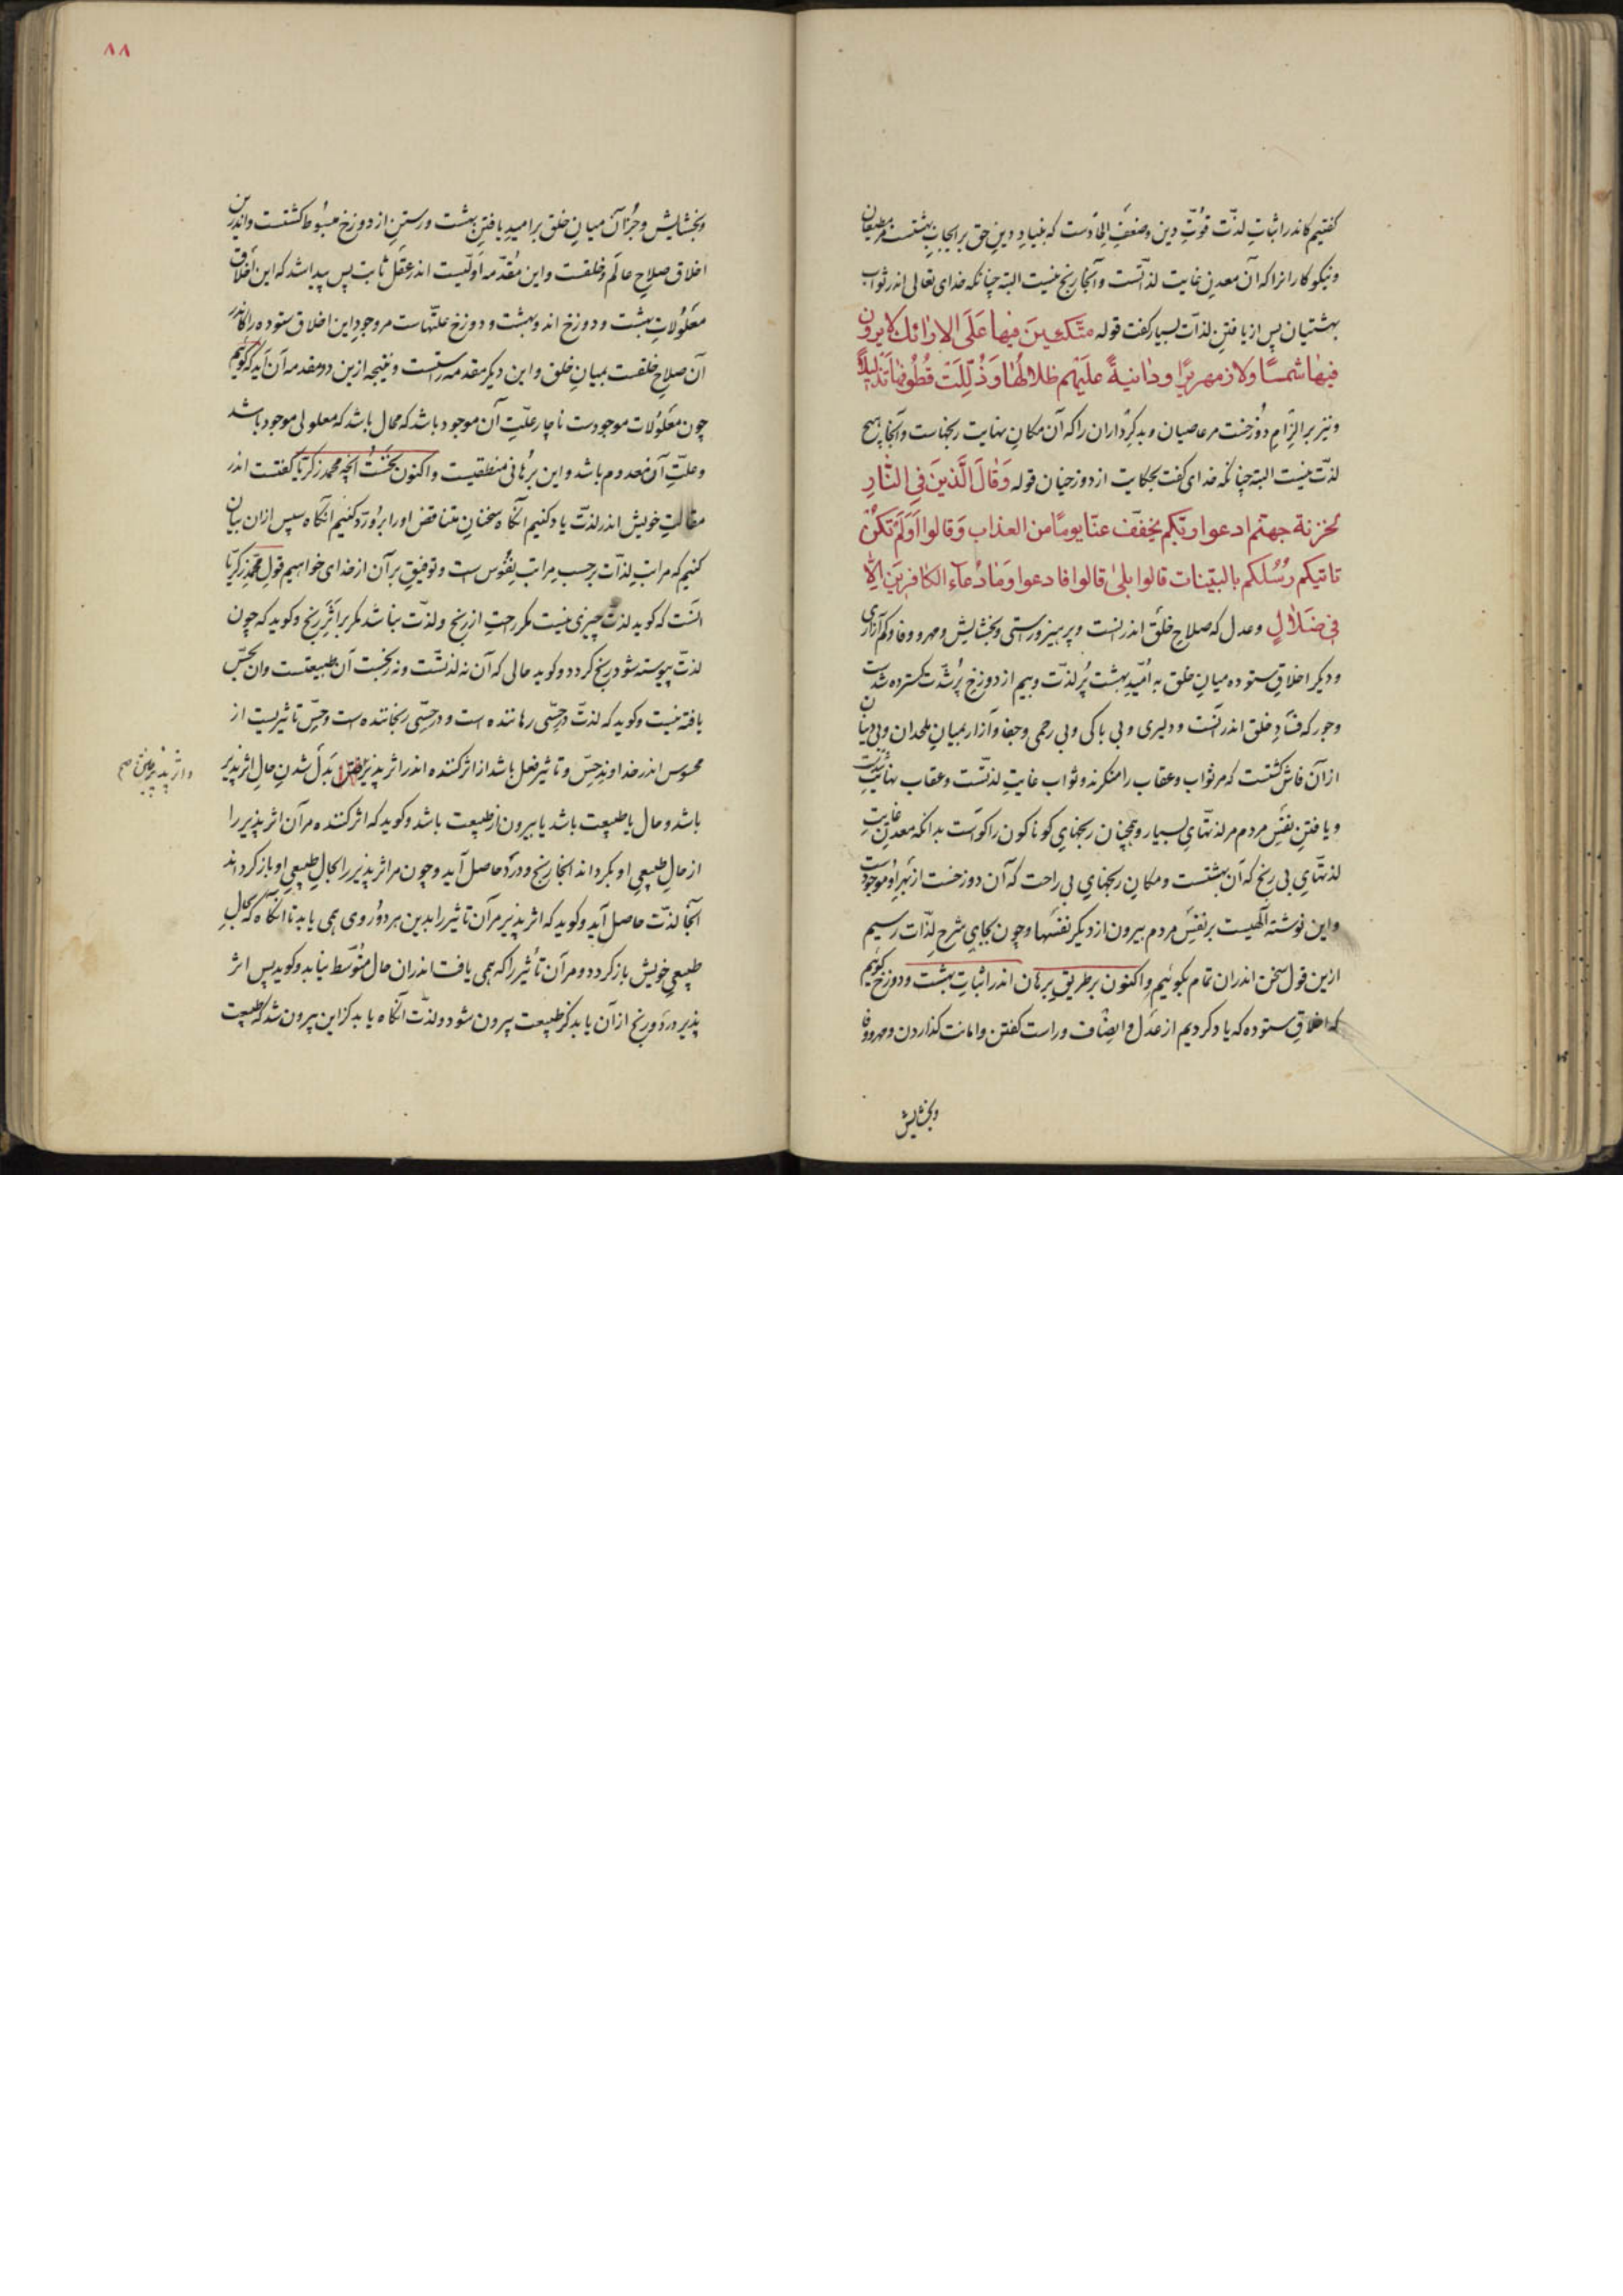 کفتیم کاندر اثباتِ لذّت قوّتِ دین و ضعفِ الحادست که بنیادِ دینِ حق بر ایجابِ بهشتست مر مطیعان
و نیکوکارانرا که آن معدنِ غایت لذّتست و آنجا رنج نیست البته چنانکه خدای تعالی اندر ثوابِ
بهشتیان پس از یافتنِ لذّات بسیار کفت قوله متّکئینَ فیها عَلَی الارائك لا یرون
فیها شمسًا ولا زمهریرًا ودانیةً علیهم ظلالُها وَذُلِّلَت قُطُوفها تَذلیلاً
و نیز بر الزامِ دوزخست مر عاصیان و بدکرداران را که آن مکانِ نهایت رنجهاست و آنجا هیچ
لذّت نیست البته چنانکه خدای کفت بحکایت از دوزخیان قوله وَقالَ الَّذینَ فِی النّارِ
لخزنة جهنّم ادعوا ربّکم یخفّف عنّا یومًا من العذاب وَقالوا اَوَلَم تَكُن
تاتیکم رُسُلکم بالبیّنات قالوا بلیٰ قالوا فادعوا وَمَا دُعاۤء الکافرینَ الّا
فی ضَلالٍ و عدل که صلاحِ خلق اندرانست و پرهیز و راستی و بخشایش و مهر و وفا و کم آزاری
و دیکر اخلاقِ ستوده میانِ خلق به امیدِ بهشت پُر لذّت و بیم از دوزخِ پُر شدّت کسترده شدست
و جور که فسادِ خلق اندرانست و دلیری و بی باکی و بی رحمی و جفا و آزار بمیانِ ملحدان و بی دینان
از آن فاش کشتست که مر ثواب و عقاب را منکرند و ثواب غایتِ لذتست و عقاب نهایتِ شدّتست
و یافتنِ نفسِ مردم مر لذتهایِ بسیار و همچنان رنجهایِ کوناکون را کواست بدانکه معدنِ غایتِ
لذتهایِ بی رنج که آن بهشتست و مکانِ رنجهایِ بی راحت که آن دوزخست از بهرِ او موجودست
و این نوشته آلهیست بر نفسِ مردم بیرون از دیکر نفسها و چون بجایِ شرحِ لذّات رسیم
ازین قول سخن اندران تمام بکوئیم و اکنون بر طریقِ برهان اندر اثباتِ بهشت و دوزخ کوئیم
که اخلاقِ ستوده که یاد کردیم از عدل و انصاف و راست کفتن و امانت کذاردن و مهر و وفا
و بخشایش
٨٨
و بخشایش و جز آن میانِ خلق بر امیدِ یافتنِ بهشت و رستن از دوزخ مبسوط کشتست و اندرین
اخلاق صلاحِ عالم و خلقست و این مقدّمه اَوّلیست اندر عقل ثابت پس پیدا شد که این اخلاق
معلولاتِ بهشت و دوزخ اند و بهشت و دوزخ علّتهاست مر وجودِ این اخلاق ستوده را کاندر
آن صلاحِ خلقست بمیانِ خلق و این دیکر مقدمه راستست و نتیجه ازین دو مقدمه آن آید که کوئیم
چون معلولات موجودست ناچار علّتِ آن موجود باشد که محال باشد که معلولی موجود باشد
و علّتِ آن معدوم باشد و این برهانی منطقیست و اکنون نخست آنچه محمد زکریا کفتست اندر
مقالتِ خویش اندر لذّت یاد کنیم آنکاه سخنانِ متناقض او را برو ردّ کنیم آنکاه سپس از آن بیان
کنیم که مراتبِ لذّات بر حسبِ مراتبِ نفوس ست و توفیقِ بر آن از خدای خواهیم قولِ محمد زکریا
آنست که کوید لذّت چیزی نیست مکر راحتِ از رنج و لذّت نباشد مکر بر اثرِ رنج و کوید که چون
لذّت پیوسته شود رنج کردد و کوید حالی که آن نه لذتست و نه رنجست آن طبیعتست و آن بحسّ
یافته نیست و کوید که لذّت حسّی رهاننده است و درد حسّی رنجاننده است و حسّ تاثیریست از
محسوس اندر خداوندِ حسّ و تاثیر فعل باشد از اثر کننده اندر اثر پذیر و اثر پذیرفتن بَدَل شدنِ حالِ اثر پذیر
و اثر پذیرفتن صح
باشد و حال یا طبیعت باشد یا بیرون از طبیعت باشد و کوید که اثر کننده مر آن اثر پذیر را
از حالِ طبیعی او بکرداند آنجا رنج و درد حاصل آید و چون مر اثر پذیر را بحالِ طبیعی او باز کرداند
آنجا لذّت حاصل آید و کوید که اثر پذیر مر آن تاثیر را بدین هر دو روی همی یابد تا آنکاه که بحالِ
طبیعی خویش باز کردد و مر آن تأثیر را که همی یافت اندران حال متوسّط نیابد و کوید پس اثر
پذیر درد و رنج از آن یابد کز طبیعت بیرون شود و لذّت آنکاه یابد کز این بیرون شد که بطبیعت